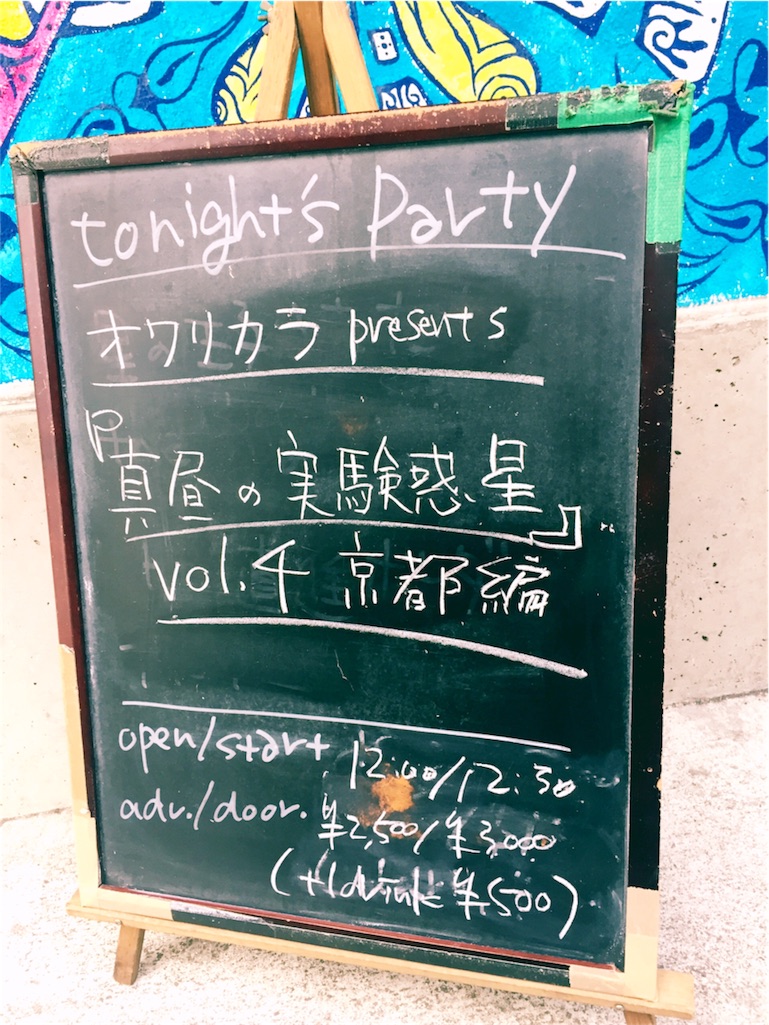 tonight's Party
オワリカラ presents
『真昼の実験惑星』
vol.4 京都編
open/start 12:00/12:30
adv./door. ¥2,500/¥3,000
(+1drink ¥500)